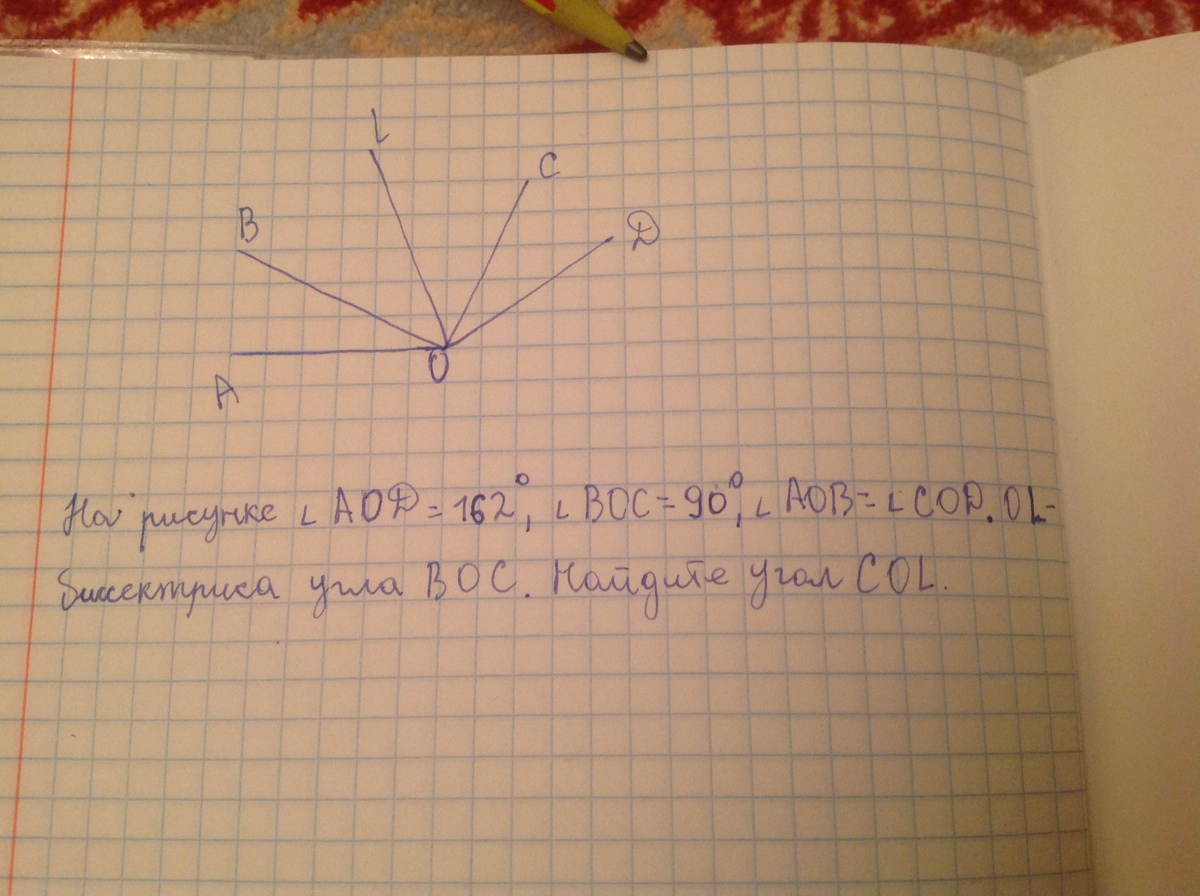 L
C
B
D
O
A
На рисунке ∠ AOD = 162°, ∠ BOC = 90°, ∠ AOB = ∠ COD. OL -
биссектриса угла BOC. Найдите угол COL.